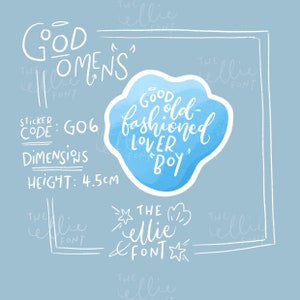 GOOD
OMENS
STICKER
CODE: G06
DIMENSIONS
HEIGHT: 4.5cm
GOOD
old-
fashioned
LOVER
BOY
THE
ellie
FONT
THE
ellie
FONT
THE
ellie
FONT
THE
ellie
FONT
THE
ellie